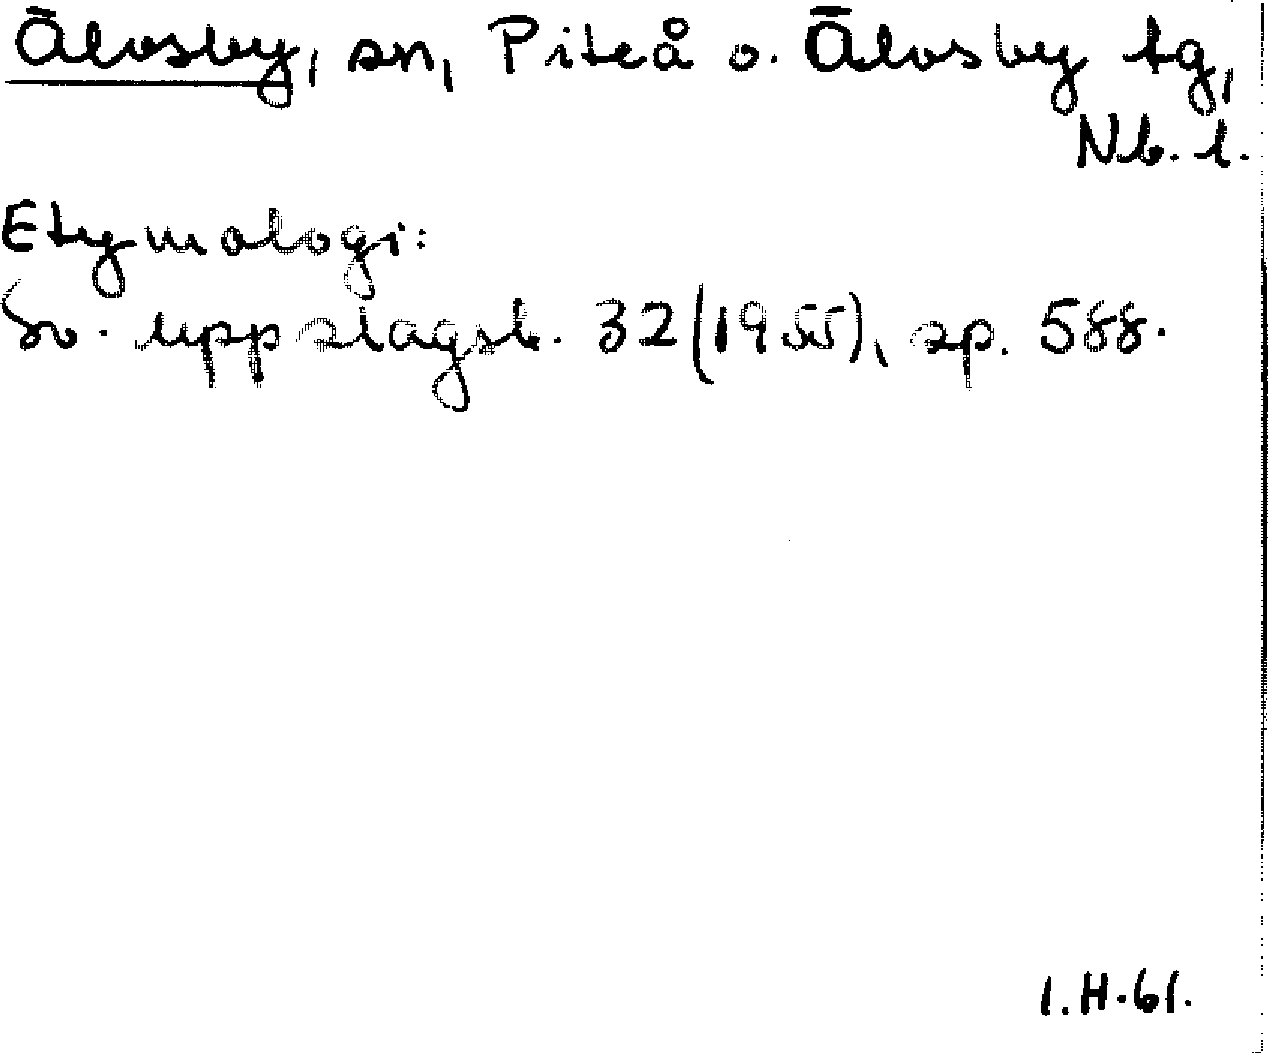 Älvsby, sn, Piteå o. Älvsby tg,
Nb. l.
Etymologi:
Sv. uppslagsb. 32 (1955), sp. 588.
I.H.61.